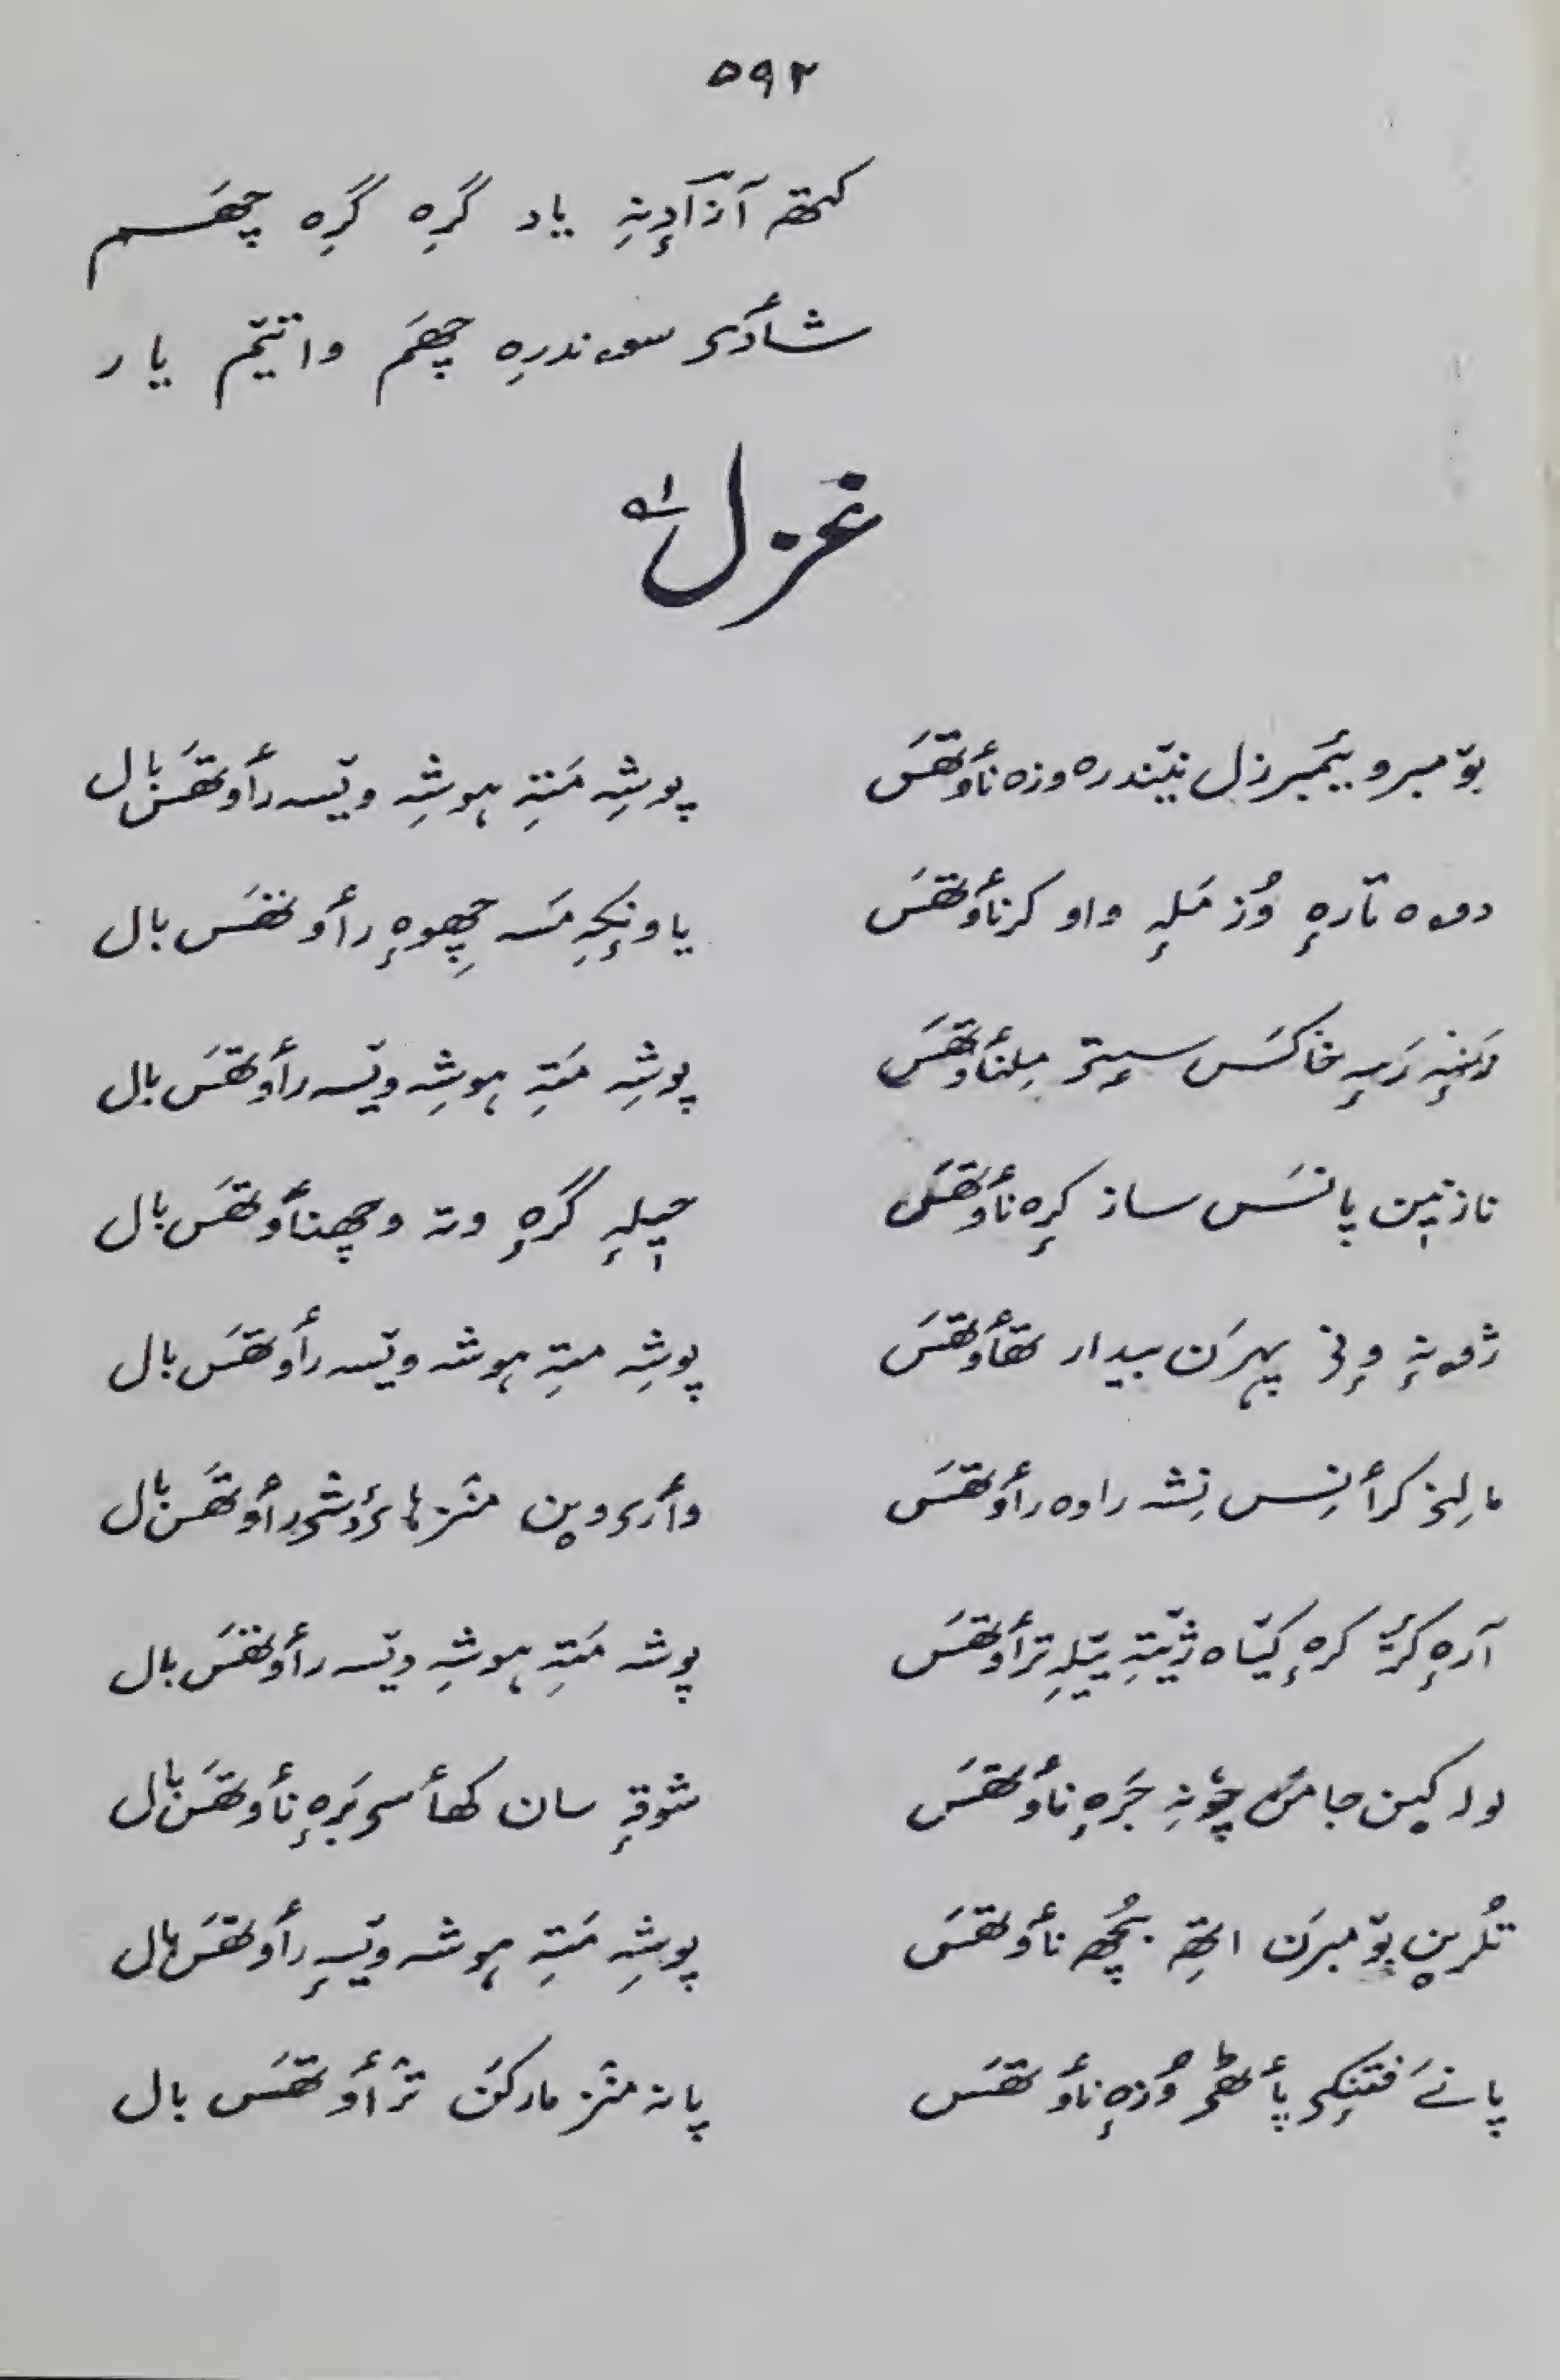 ۵۹۲
کتھ آزادٕنہِ یاد گرِہ گرِہ چھَسم
شأدی سوندرہِ چھَم واتیٚم یار
غزل
بوٚمبرو یٔمبرزل نیٚندرہ وزہ نأوتھَس پوشہِ مَتہِ ہوشہِ ویٚسہ رأوتھَس بال
دوہ تارہٕ وُزمَلہٕ واو کرنأوتھَس یاونٕچہِ مَسہ چھِوہٕ رأوتھَس بال
خاکَس سٟتؠ مِلنأوتھَس پوشہِ مَتہِ ہوشہِ ویٚسہ رأوتھَس بال
نازنیٖن پانَس ساز کرٕہ نأوتھَس حیٖلہٕ گرہٕ وتہ وچھنأوتھَس بال
ژونہٕ وٕنی پہرَن بیدار تھأوتھَس پوشہِ متہِ ہوشہ ویٚسہ رأوتھَس بال
مالِنؠ کرأنِس نِشہ راوہ رأوتھَس وأری وین منٛز رأوتھَس بال
آرہٕ کرٕہ کیٚاہ ژیٚتہِ یٚیلہِ ترأوتھَس پوشہ مَتہِ ہوشہِ ویٚسہ رأوتھَس بال
جامَن جَرہٕ نأوتھَس شوقہٕ سان کھأسی بَرہٕ نأوتھَس بال
بوٚمبرَن اتھِ نأوتھَس پوشہِ مَتہِ ہوشہ ویٚسہٕ رأوتھَس بال
پانے فتنٕکی پأٹھی وُزہٕ نأوتھَس پانہ منٛز مارکَن ترأوتھَس بال